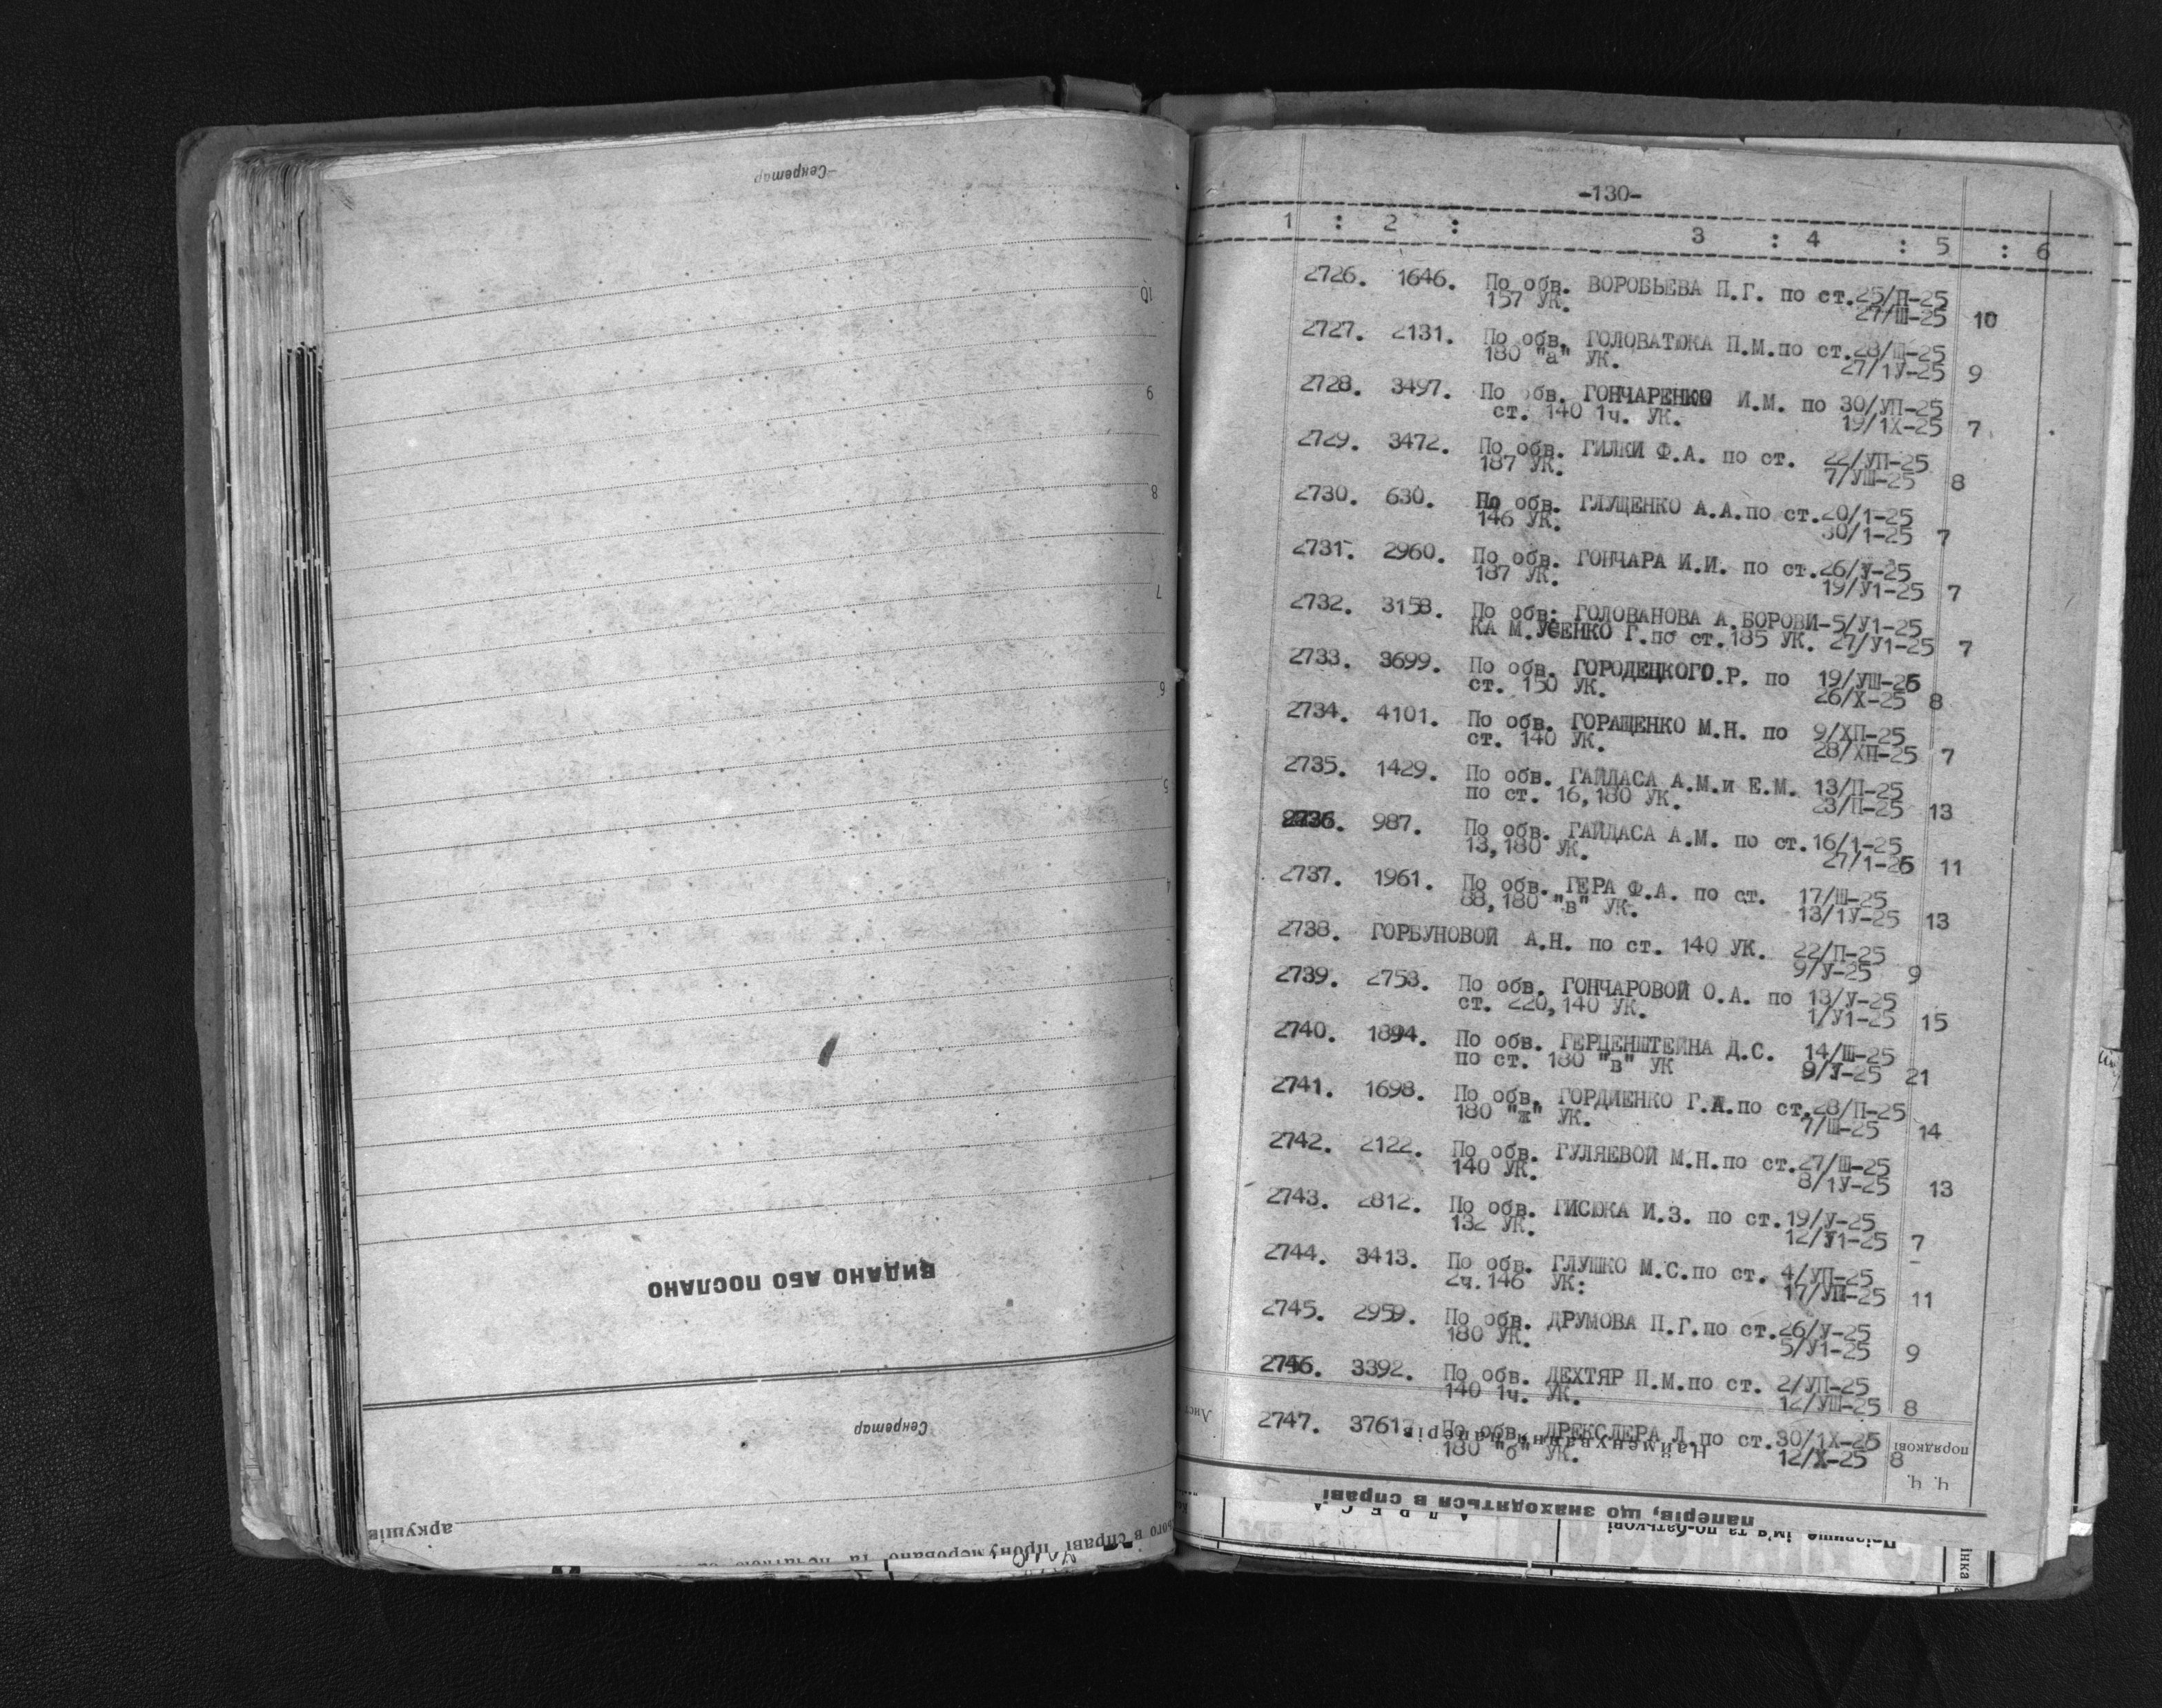 Секретар
10
9
8
7
6
5
4
3
ВИДАНО АБО ПОСЛАНО
Секретар
аркушів
справі пронумеровано та
-130-
1 : 2 : 3 : 4 : 5 : 6
2726. 1646. По обв. ВОРОБЬЕВА П.Г. по ст.25/П-25
157 УК. 27/Ш-25 10
2727. 2131. По обв. ГОЛОВАТЮКА П.М.по ст.28/Ш-25
180 "а" УК. 27/1У-25 9
2728. 3497. По обв. ГОНЧАРЕНКО И.М. по 30/УП-25
ст. 140 1ч. УК. 19/1Х-25 7
2729. 3472. По обв. ГИЛКИ Ф.А. по ст. 22/УП-25
187 УК. 7/УШ-25 8
2730. 630. По обв. ГЛУЩЕНКО А.А.по ст.20/1-25
146 УК. 30/1-25 7
2731. 2960. По обв. ГОНЧАРА И.И. по ст.26/У-25
187 УК. 19/У1-25 7
2732. 3158. По обв: ГОЛОВАНОВА А.БОРОВИ-5/У1-25
КА М.УСЕНКО Г.по ст.185 УК. 27/У1-25 7
2733. 3699. По обв. ГОРОДЕЦКОГО.Р. по 19/УШ-25
ст. 150 УК. 26/Х-25 8
2734. 4101. По обв. ГОРАЩЕНКО М.Н. по 9/ХП-25
ст. 140 УК. 28/ХП-25 7
2735. 1429. По обв. ГАЙДАСА А.М.и Е.М. 13/П-25
по ст. 16,180 УК. 23/П-25 13
2736. 987. По обв. ГАЙДАСА А.М. по ст.16/1-25
13,180 УК. 27/1-25 11
2737. 1961. По обв. ГЕРА Ф.А. по ст. 17/Ш-25
88,180 "в" УК. 13/1У-25 13
2738. ГОРБУНОВОЙ А.Н. по ст. 140 УК. 22/П-25
9/У-25 9
2739. 2753. По обв. ГОНЧАРОВОЙ О.А. по 13/У-25
ст. 220,140 УК. 1/У1-25 15
2740. 1894. По обв. ГЕРЦЕНШТЕЙНА Д.С. 14/Ш-25
по ст. 180 "в" УК 9/У-25 21
2741. 1698. По обв. ГОРДИЕНКО Г.И.по ст.28/П-25
180 "ж" УК. 7/Ш-25 14
2742. 2122. По обв. ГУЛЯЕВОЙ М.Н.по ст.27/Ш-25
140 УК. 8/1У-25 13
2743. 2812. По обв. ГИСЮКА И.З. по ст.19/У-25
132 УК. 12/У1-25 7
2744. 3413. По обв. ГЛУШКО М.С.по ст. 4/УП-25
2ч.146 УК: 17/УП-25 11
2745. 2959. По обв. ДРУМОВА П.Г.по ст.26/У-25
180 УК. 5/У1-25 9
2746. 3392. По обв. ДЕХТЯР П.М.по ст. 2/УП-25
140 1ч. УК. 12/УШ-25 8
2747. 3761. По обв. ДРЕКСЛЕРА Л.по ст.30/1Х-25
180 "б" УК. 12/Х-25 8
Найменування паперів
порядкові
Ч. Ч.
паперів, що знаходяться в справі
АДРЕСА
Прізвище ім'я та по-батькові